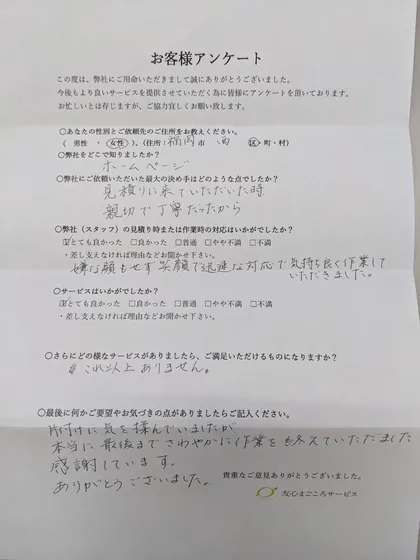 お客様アンケート
この度は、弊社にご用命いただきまして誠にありがとうございました。
今後もより良いサービスを提供させていただく為に皆様にアンケートを頂いております。
お忙しいとは存じますが、ご協力宜しくお願い致します。
○あなたの性別とご依頼先のご住所をお教えください。
( 男性 ・ 女性 )、(住所: 福岡 市 西 区・町・村)
○弊社をどこで知りましたか?
ホームページ
○弊社にご依頼いただいた最大の決め手はどのような点でしたか?
見積りに来ていただいた時
親切で丁寧だったから
○弊社(スタッフ)の見積り時または作業時の対応はいかがでしたか?
☑とても良かった □良かった □普通 □やや不満 □不満
・差し支えなければ理由などお聞かせ下さい。
嫌な顔もせず笑顔で迅速な対応で気持ち良く作業して
いただきました。
○サービスはいかがでしたか?
☑とても良かった □良かった □普通 □やや不満 □不満
・差し支えなければ理由などお聞かせ下さい。
○さらにどの様なサービスがありましたら、ご満足いただけるものになりますか?
これ以上ありません。
○最後に何かご要望やお気づきの点がありましたらご記入ください。
片付けに気を揉んでいましたが
本当に最後までさわやかに作業を終えていただました
感謝しています。
ありがとうございました。
貴重なご意見ありがとうございました。
友心まごころサービス